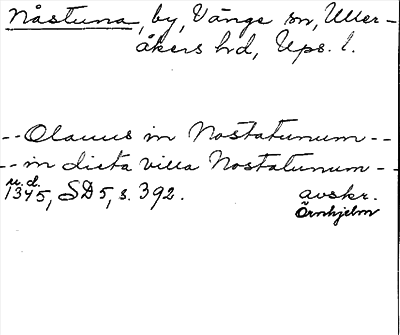 Nåstuna, by, Vänge sn, Uller-
åkers hd, Ups. l.
-- Olauus in Nostatunum --
-- in dicta villa Nostatunum --
u.d.
1345, SD 5, s. 392. avskr.
Örnhjelm